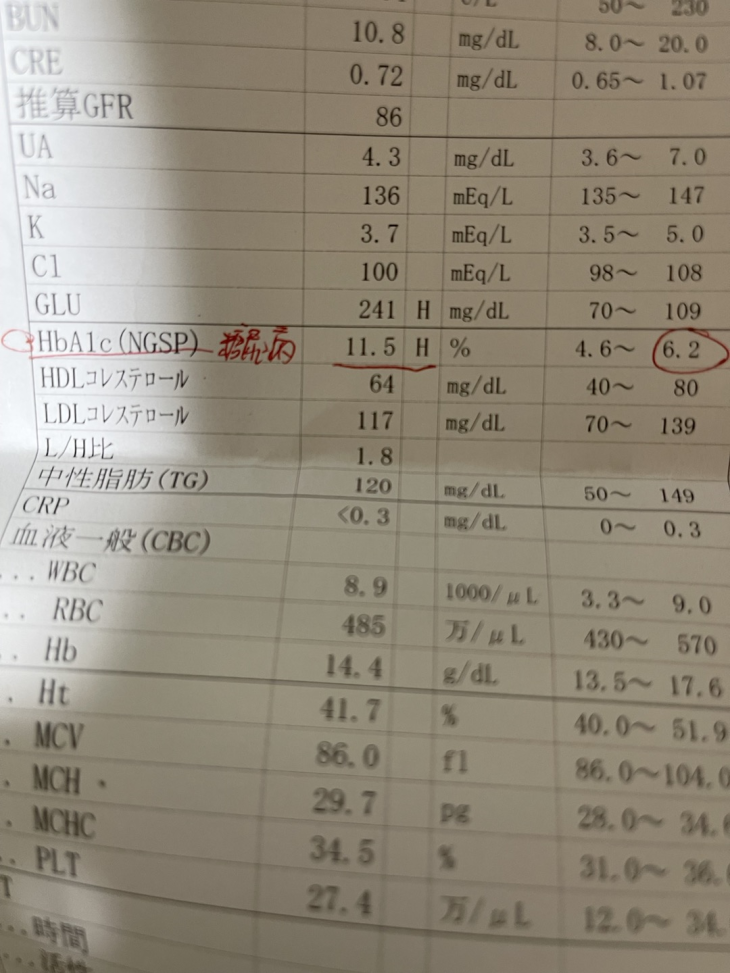 50～ 230
BUN 10.8 mg/dL 8.0～ 20.0
CRE 0.72 mg/dL 0.65～ 1.07
推算GFR 86
UA 4.3 mg/dL 3.6～ 7.0
Na 136 mEq/L 135～ 147
K 3.7 mEq/L 3.5～ 5.0
Cl 100 mEq/L 98～ 108
GLU 241 H mg/dL 70～ 109
HbA1c(NGSP) 糖尿病 11.5 H % 4.6～ 6.2
HDLコレステロール 64 mg/dL 40～ 80
LDLコレステロール 117 mg/dL 70～ 139
L/H比 1.8
中性脂肪(TG) 120 mg/dL 50～ 149
CRP <0.3 mg/dL 0～ 0.3
血液一般(CBC)
...WBC 8.9 1000/μL 3.3～ 9.0
.. RBC 485 万/μL 430～ 570
. Hb 14.4 g/dL 13.5～ 17.6
. Ht 41.7 % 40.0～ 51.9
. MCV 86.0 fl 86.0～104.0
. MCH 29.7 pg 28.0～ 34.
. MCHC 34.5 % 31.0～ 36.
.. PLT 27.4 万/μL 12.0～ 34.
T
...時間